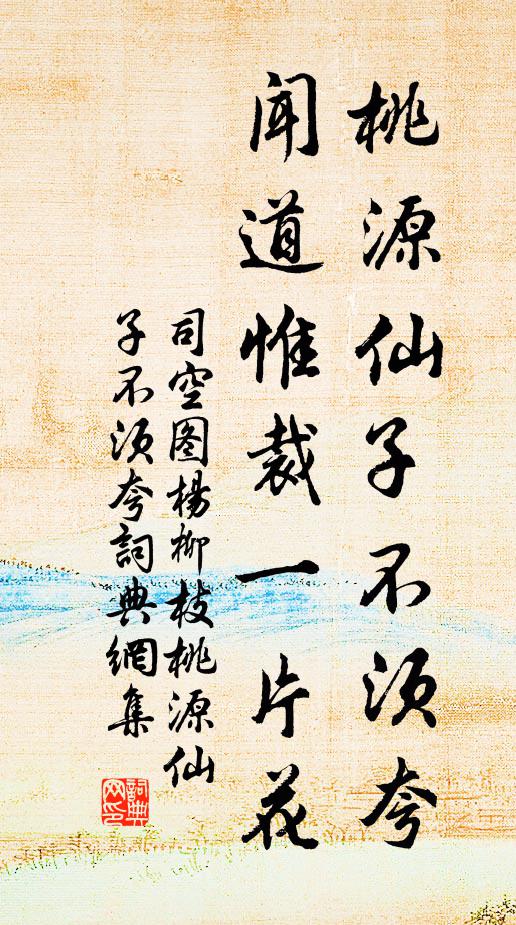 桃源仙子不须夸
闻道惟裁一片花
司空图杨柳枝桃源仙
子不须夸詞典網集
詞典网印